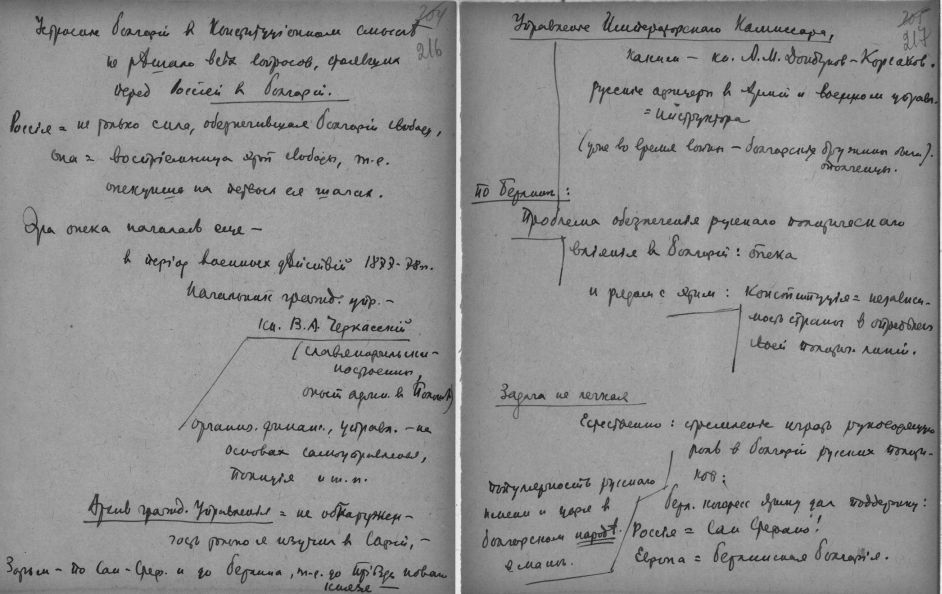 204
216
Устроение Болгарiи в Конституцiонном смысле
не рѣшало всѣх вопросов, стоявших
перед Россiей в Болгарiи.
Россiя = не только сила, обезпечившая Болгарiи свободу,
она = воспрiемница этой свободы, т.е.
опекунша на первых ея шагах.
Эта опека началась еще –
в перiод военных дѣйствiй 1877-78 гг.
Начальник гражд. упр. –
кн. В.А. Черкасскiй
(славянофильски-
настроенный,
опыт адми. в Польшѣ)
организ. финанс., управл. – на
основах самоуправленiя,
полицiя и т.п.
Архив гражд. Управленiя = не обнаружен –
я изучил в Софiи, –
Затѣм – по Сан-Стеф. и до Берлина, т.е. до прiѣзда новаго
князя –
205
217
Управленiе Императорскаго Комиссара,
каким – кн. А.М. Дондуков-Корсаков.
Русские офицеры в Армiи и военном управл.
= инструктора
(уже во время войны – болгарскiя дружины были).
ополченцы.
По Берлину:
Проблема обезпеченiя русскаго политическаго
влiянiя в Болгарiи: опека
и рядом с этим: Конституцiя = независи-
мость страны в опредѣленiи
своей политич. линiи.
Задача не легкая
Естественно: стремленiе играть руководящую
роль в Болгарiи русских полити-
ков:
популярность русскаго
имени и царя в
болгарском народѣ.
Берл. конгресс этому дал поддержку:
Россiя = Сан Стефано!
Европа = берлинская Болгарiя.